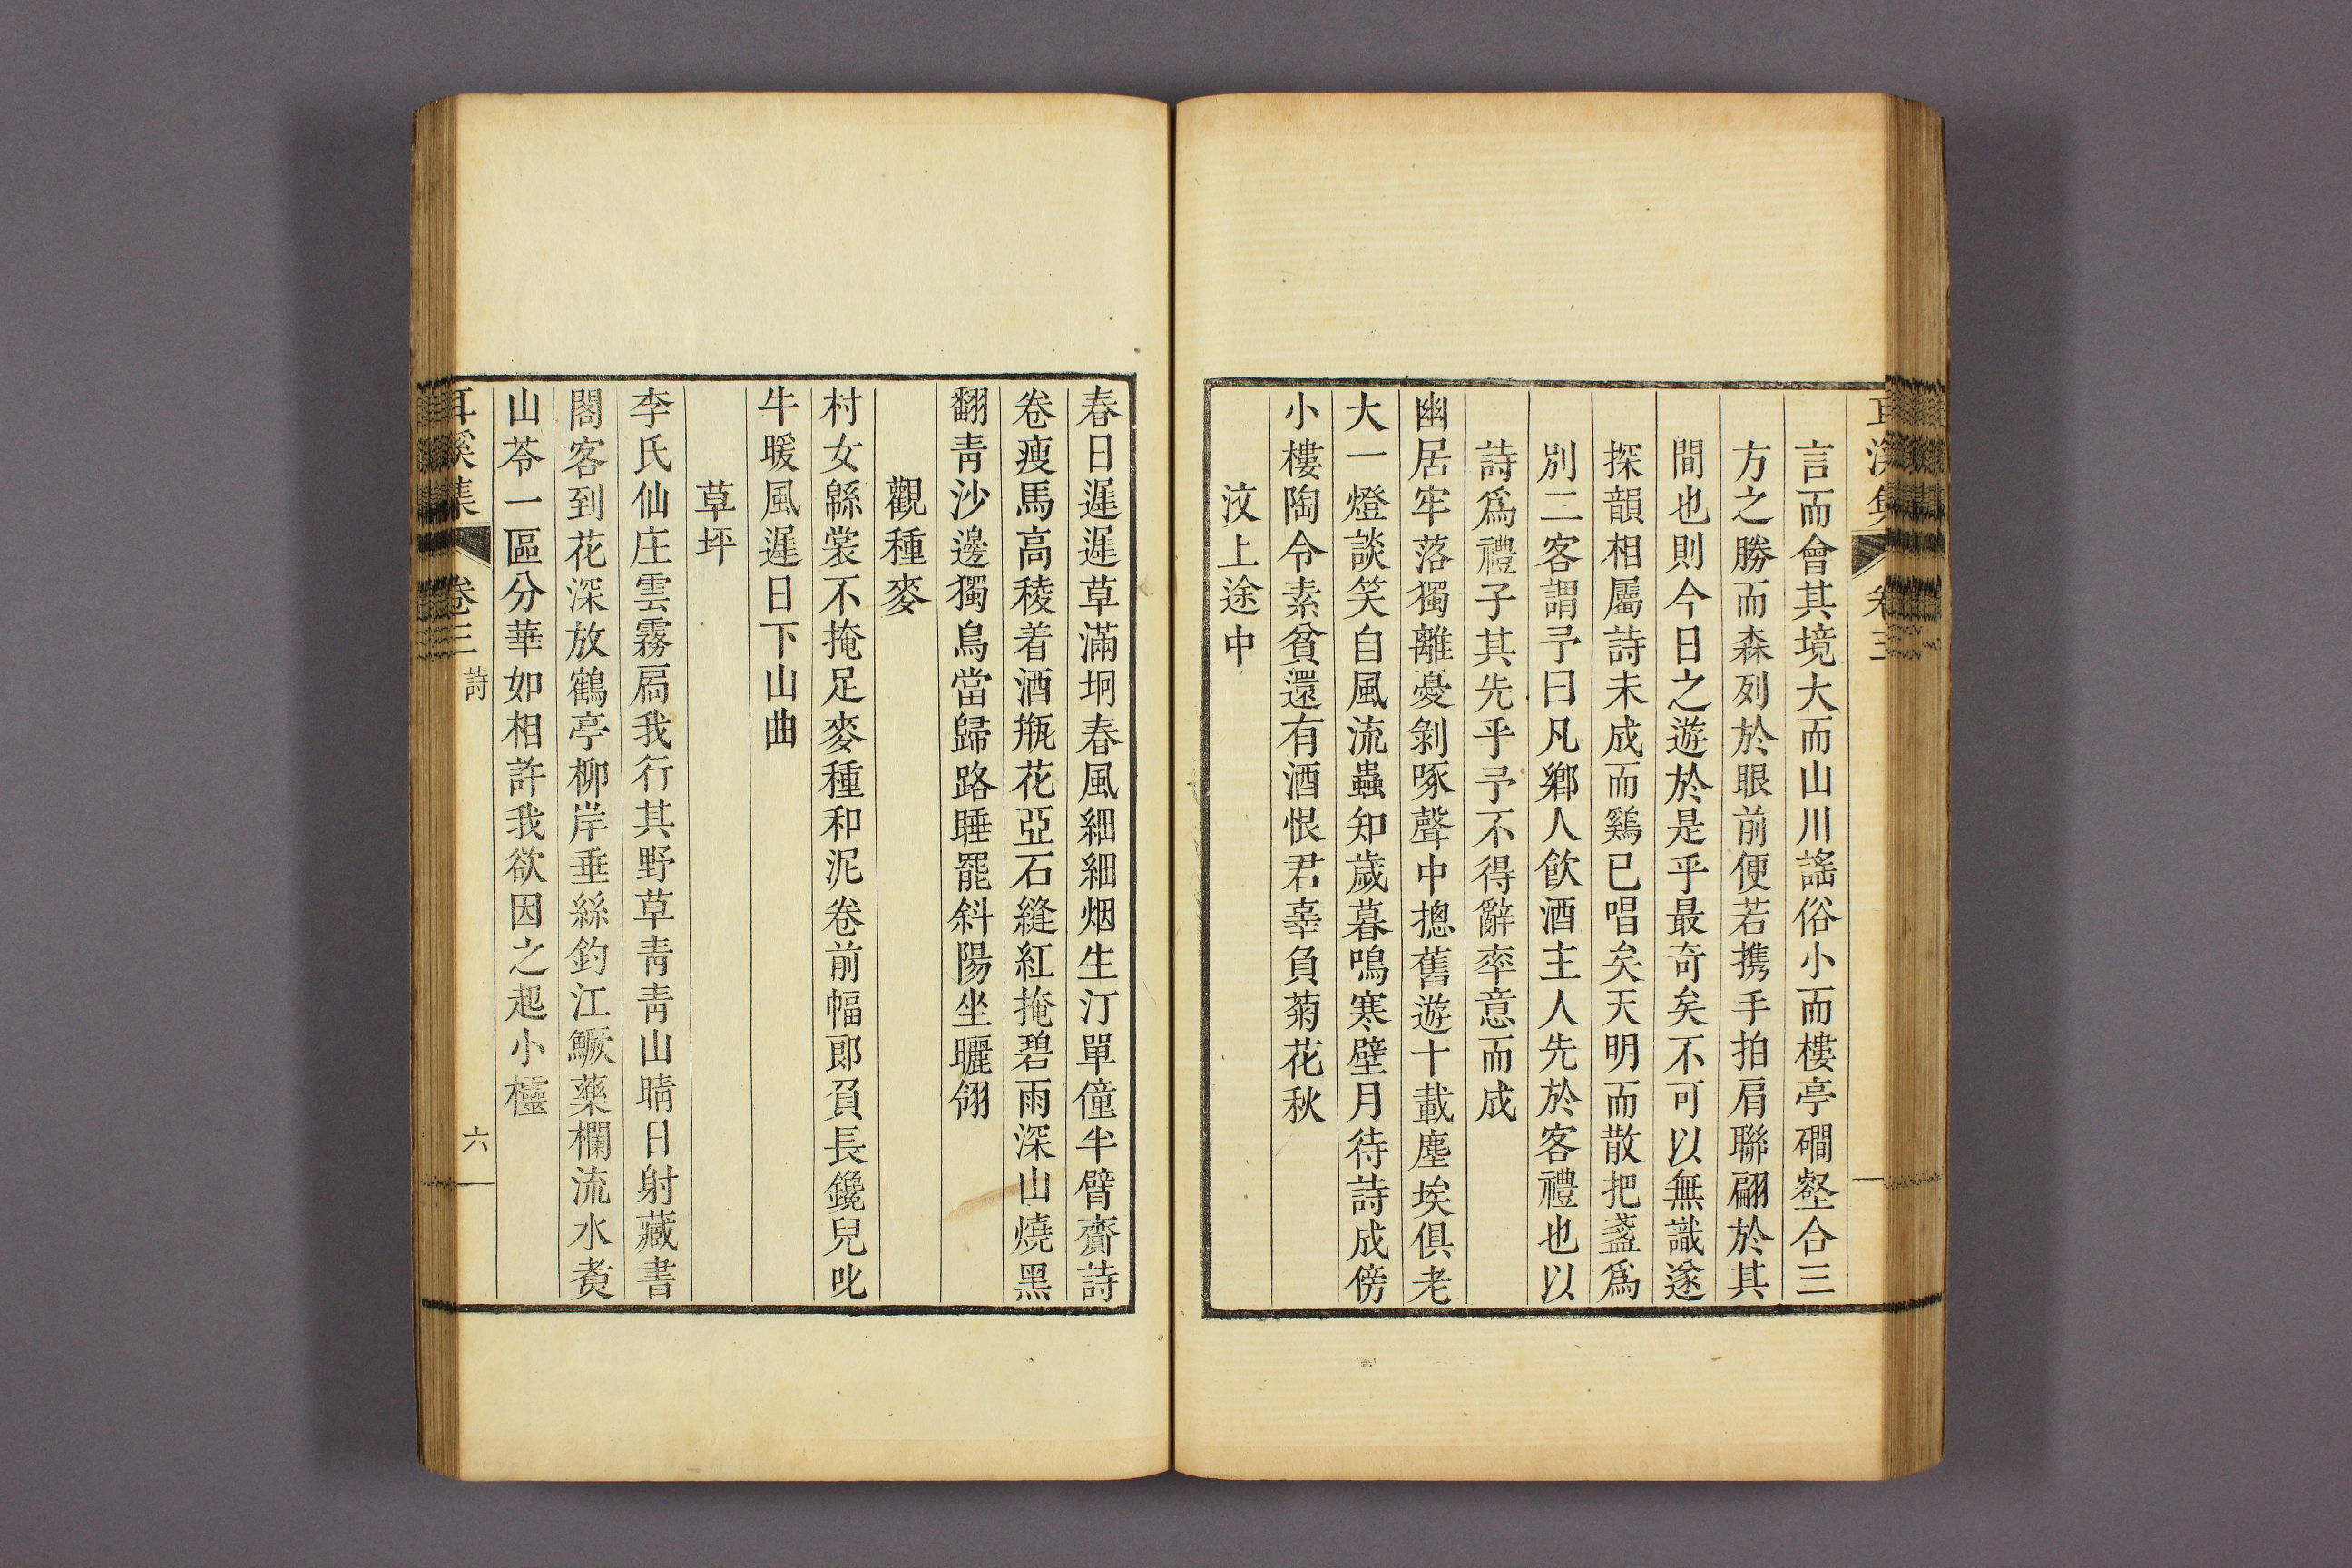 耳溪集 卷三
言而會其境大而山川謠俗小而樓亭磵壑合三
方之勝而森列於眼前便若携手拍肩聯翩於其
間也則今日之遊於是乎最奇矣不可以無識遂
探韻相屬詩未成而鷄已唱矣天明而散把盞爲
別二客謂予曰凡鄕人飮酒主人先於客禮也以
詩爲禮子其先乎予不得辭率意而成
幽居牢落獨離憂剝啄聲中摠舊遊十載塵埃俱老
大一燈談笑自風流蟲知歲暮鳴寒壁月待詩成傍
小樓陶令素貧還有酒恨君辜負菊花秋
汶上途中
春日遲遲草滿坰春風細細烟生汀單僮半臂齎詩
卷瘦馬高稜着酒甁花亞石縫紅掩碧雨深山燒黑
翻靑沙邊獨鳥當歸路睡罷斜陽坐曬翎
觀種麥
村女緜裳不掩足麥種和泥卷前幅郞負長鑱兒叱
牛暖風遲日下山曲
草坪
李氏仙庄雲霧扃我行其野草靑靑山晴日射藏書
閣客到花深放鶴亭柳岸垂絲釣江鱖藥欄流水煑
山苓一區分華如相許我欲因之起小櫺
耳溪集 卷三 詩 六